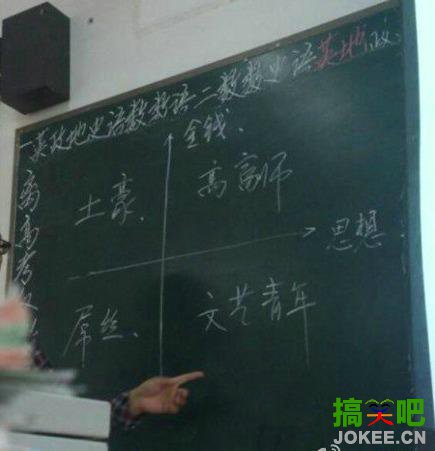 一英政地史语数数语二数数史语英地政
离高考
金钱.
土豪、
高富师
思想
屌丝、
文艺青年
搞笑吧
JOKEE.CN